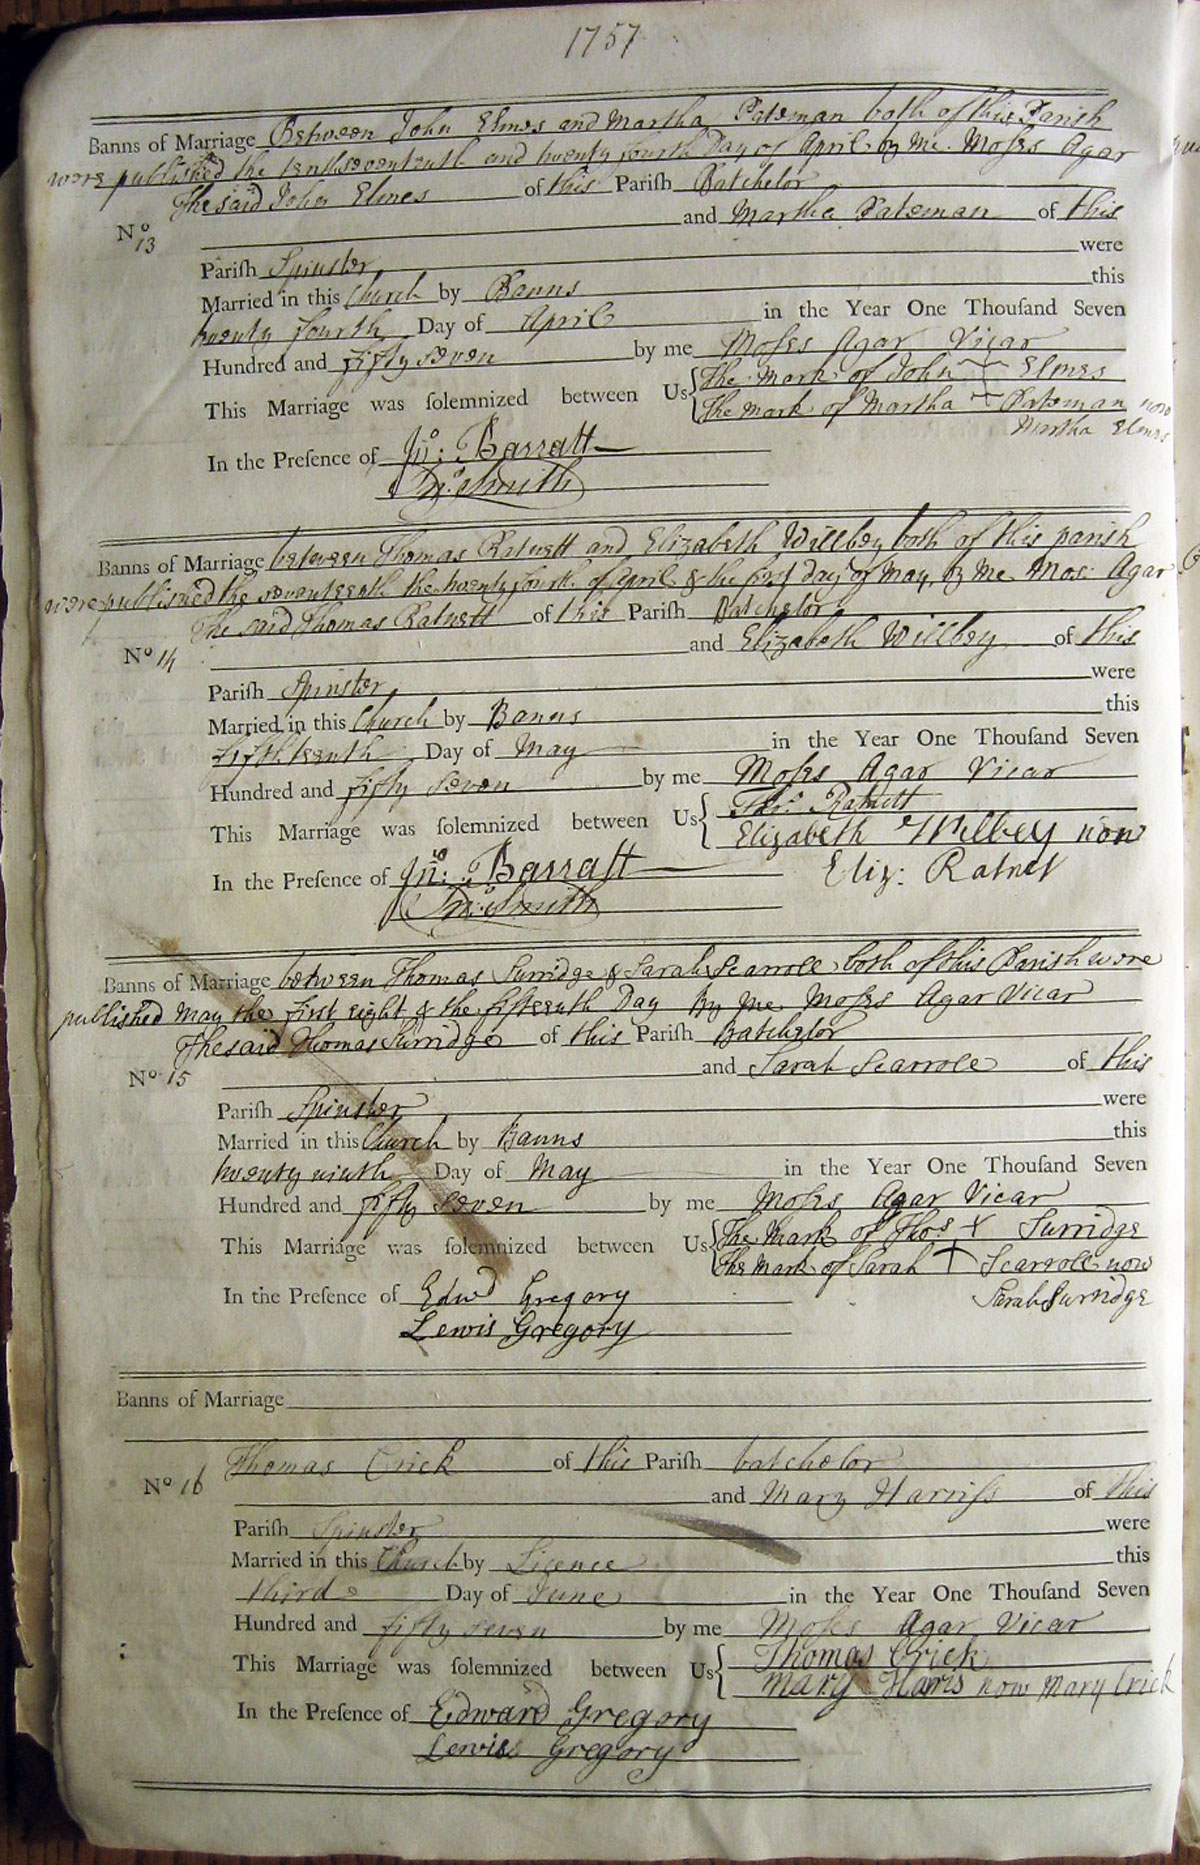 1757
Banns of Marriage Between John Elmes and Martha Pateman both of this Parish
were published the tenth seventeenth and twenty fourth Day of April by me Moſes Agar
The said John Elmes of this Pariſh Batchelor
No 13 and Martha Pateman of this
Pariſh Spinster were
Married in this Church by Banns this
twenty fourth Day of April in the Year One Thouſand Seven
Hundred and fifty seven by me Moſes Agar Vicar
This Marriage was ſolemnized between Us The Mark of John X Elmes
The Mark of Martha X Pateman now
Martha Elmes
In the Preſence of Jno: Barratt
Smith
Banns of Marriage between Thomas Ratnett and Elizabeth Willbey both of this parish
were published the seventeenth the twenty fourth of April & the first day of May, by me Mos: Agar
The said Thomas Ratnett of this Pariſh Batchelor
No 14 and Elizabeth Willbey of this
Pariſh Spinster were
Married in this Church by Banns this
fifthteenth Day of May in the Year One Thouſand Seven
Hundred and fifty seven by me Moſes Agar Vicar
This Marriage was ſolemnized between Us Thos. Ratnett
Elizabeth Willbey now
Eliz: Ratnet
In the Preſence of Jno: Barratt
Smith
Banns of Marriage between Thomas Surridge & Sarah Scarroll both of this Parish were
published May the first eight & the fifteenth Day by me Moſes Agar Vicar
The said Thomas Surridge of this Pariſh Batchelor
No 15 and Sarah Scarrole of this
Pariſh Spinster were
Married in this Church by Banns this
twenty ninth Day of May in the Year One Thouſand Seven
Hundred and fifty seven by me Moſes Agar Vicar
This Marriage was ſolemnized between Us The Mark of Thos X Surridge
The Mark of Sarah + Scarrole now
Sarah Surridge
In the Preſence of Edwd Gregory
Lewis Gregory
Banns of Marriage
Thomas Crick of this Pariſh batchelor
No 16 and Mary Harriſs of this
Pariſh Spinster were
Married in this Church by Licence this
third Day of June in the Year One Thouſand Seven
Hundred and fifty seven by me Moſes Agar Vicar
This Marriage was ſolemnized between Us Thomas Crick
Mary Harris now Mary Crick
In the Preſence of Edward Gregory
Lewis Gregory